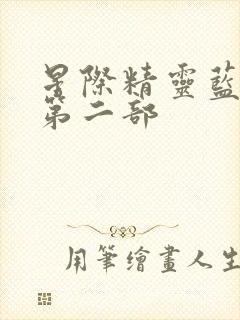 星際精靈藍
第二部
用筆繪畫人生